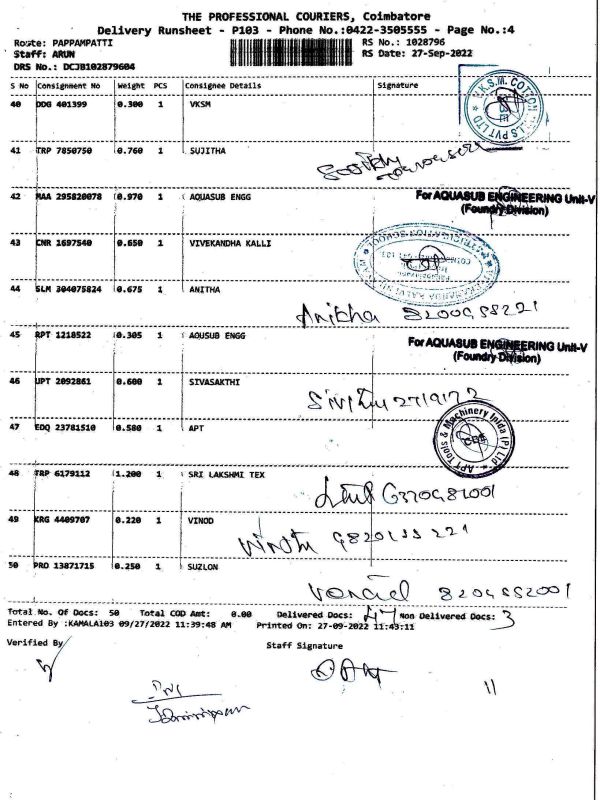 THE PROFESSIONAL COURIERS, Coimbatore
Delivery Runsheet - P103 - Phone No.:0422-3505555 - Page No.:4
Route: PAPPAMPATTI RS No.: 1028796
Staff: ARUN RS Date: 27-Sep-2022
DRS No.: DCJB102879604
S No Consignment No Weight PCS Consignee Details Signature
40 DDG 401399 0.300 1 VKSM
41 TRP 7850750 0.760 1 SUJITHA
42 MAA 295820078 0.970 1 AQUASUB ENGG For AQUASUB ENGINEERING Unit-V
(Foundry Division)
43 CNR 1697540 0.650 1 VIVEKANDHA KALLI
44 SLM 304075824 0.675 1 ANITHA
Anitha
45 RPT 1218522 0.305 1 AQUSUB ENGG For AQUASUB ENGINEERING Unit-V
(Foundry Division)
46 UPT 2092861 0.600 1 SIVASAKTHI
47 EDQ 23781510 0.580 1 APT APT Tools & Machinery Inida (P) Ltd
48 TRP 6179112 1.200 1 SRI LAKSHMI TEX
49 KRG 4409707 0.220 1 VINOD
50 PRO 13871715 0.250 1 SUZLON
Total No. Of Docs: 50 Total COD Amt: 0.00 Delivered Docs: 47 Non Delivered Docs: 3
Entered By :KAMALA103 09/27/2022 11:39:48 AM Printed On: 27-09-2022 11:43:11
Verified By Staff Signature